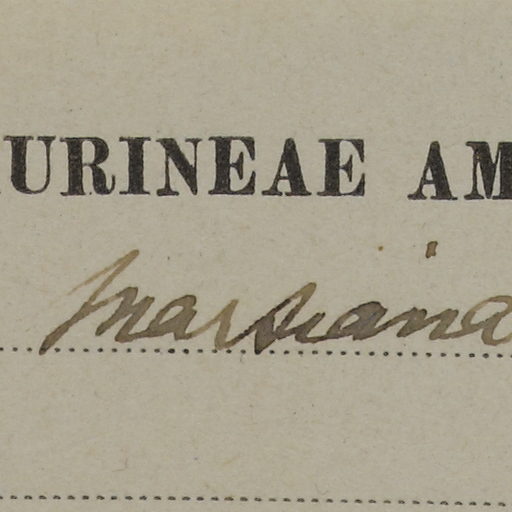 AURINEAE AM
marsiana